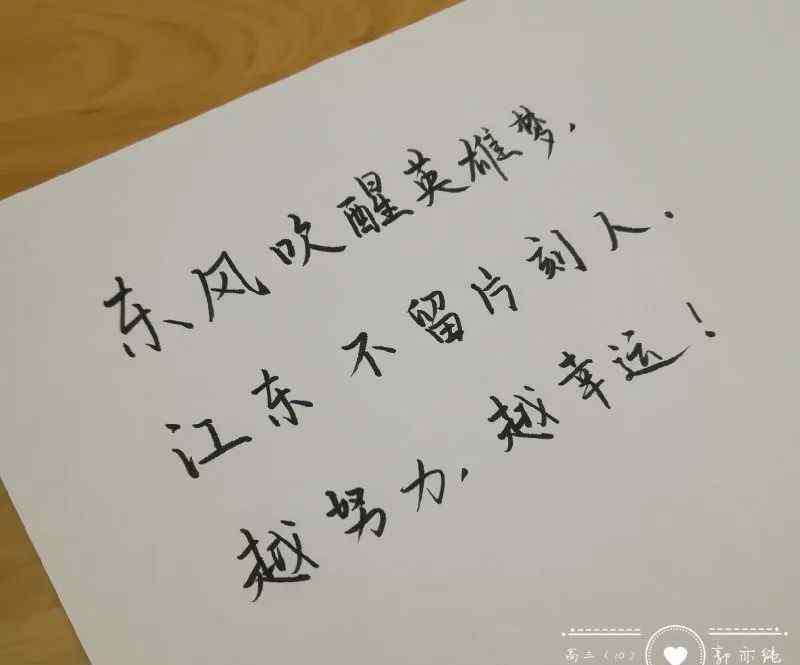 东风吹醒英雄梦.
江东不留片刻人.
越努力,越幸运!
高三(10) 郭亦纯